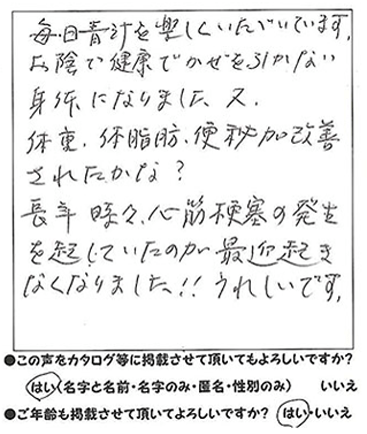 毎日青汁を楽しくいただいています。
お陰で健康でかぜを引かない
身体になりました。又、
体重、体脂肪、便秘が改善
されたかな?
長年 時々、心筋梗塞の発生
を起していたのが最近起き
なくなりました!!うれしいです。
●この声をカタログ等に掲載させて頂いてもよろしいですか?
はい(名字と名前・名字のみ・匿名・性別のみ) いいえ
●ご年齢も掲載させて頂いてよろしいですか? はい・いいえ